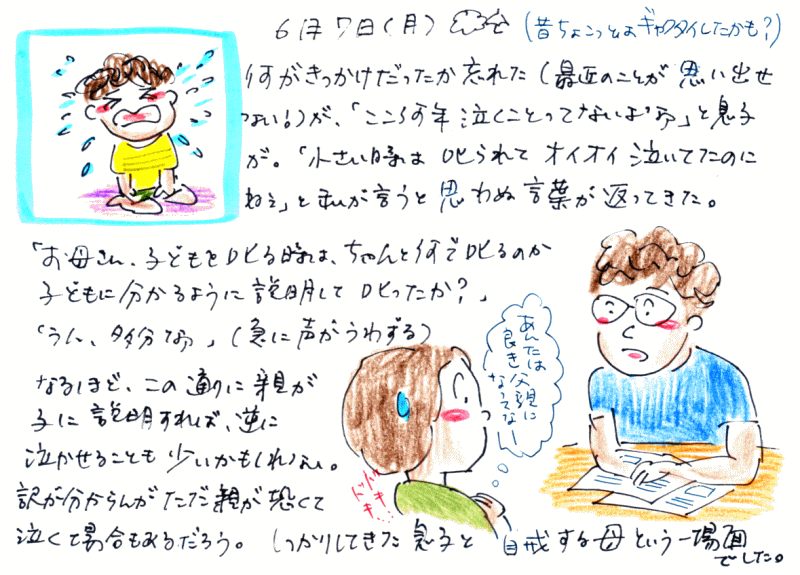 6月7日(月)
(昔ちょこっとはギャクタイしたかも?)
何がきっかけだったか忘れた(最近のことが思い出せ
ない!)が、「ここ何年泣くことってないよなァ」と息子
が。「小さい時は叱られてオイオイ泣いてたのに
ねぇ」と私が言うと思わぬ言葉が返ってきた。
「お母さん、子どもを叱る時は、ちゃんと何で叱るのか
子どもに分かるように説明して叱ったか?」
「うん、多分なァ」(急に声がうわずる)
なるほど、この通りに親が
子に説明すれば、逆に
泣かせることも少いかもしれない。
訳が分からんがただ親が恐くて
泣くて場合もあるだろう。しっかりしてきた息子と
自戒する母という一場面
でした。
あんたは
良き父親に
なってな
ドキドキ…